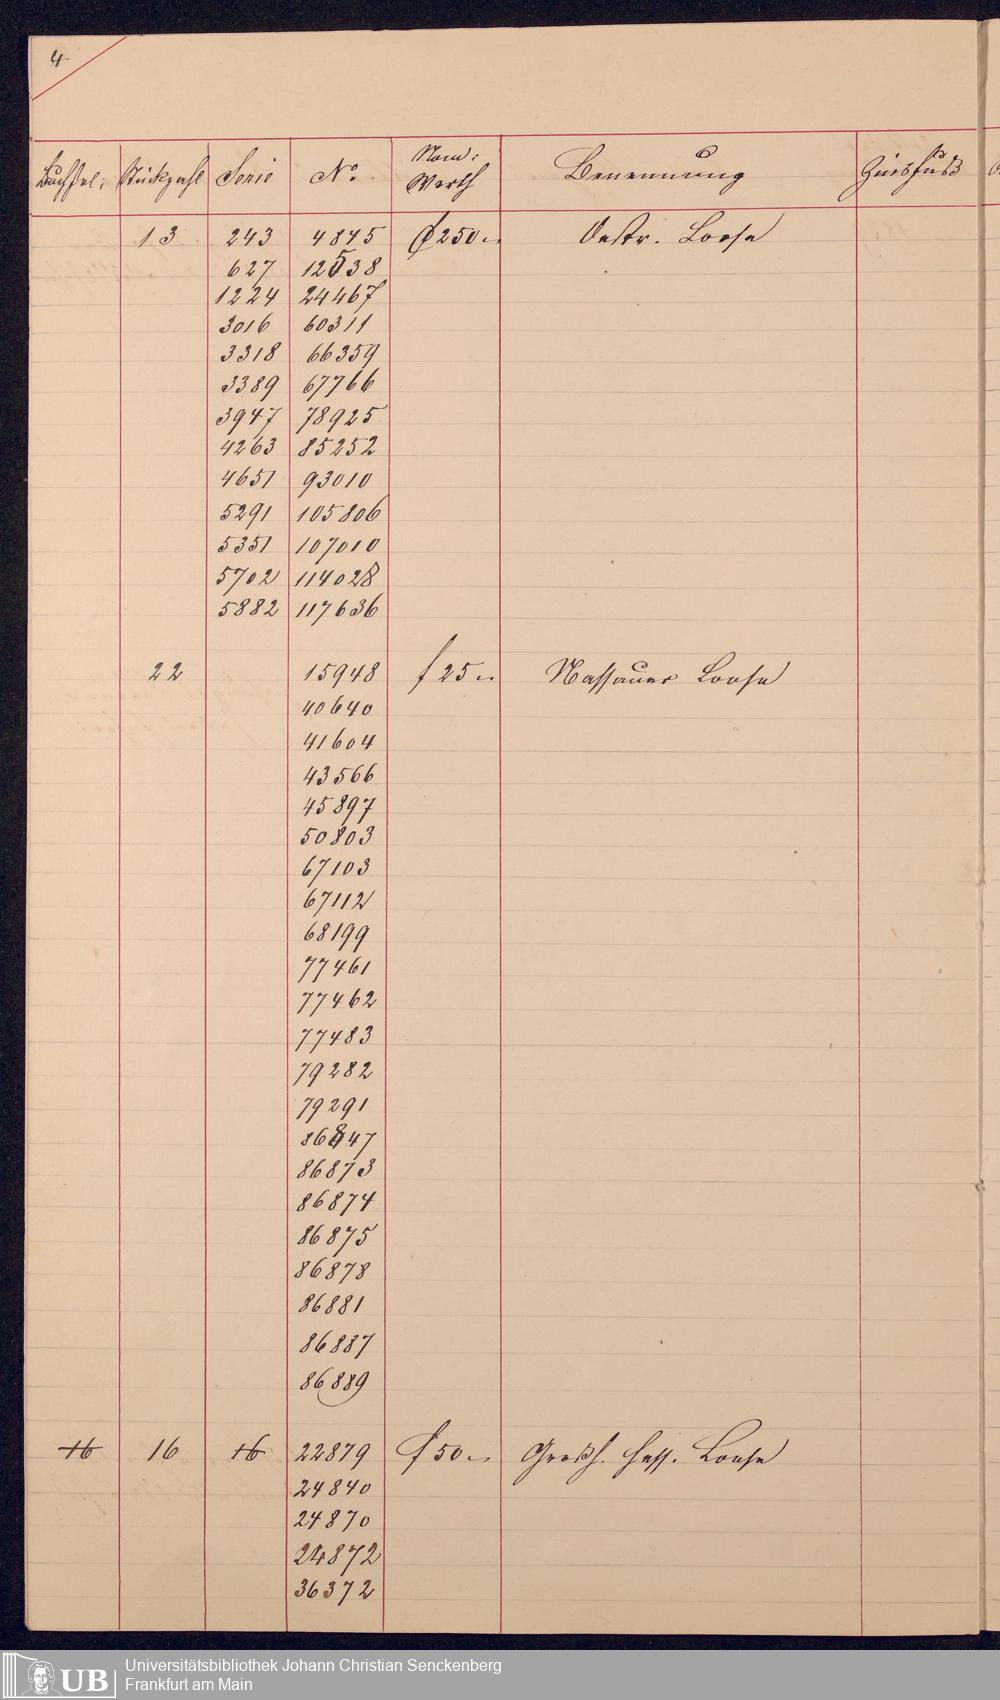 4
Buchfol: Stückzahl Serie No. Nom: Werth Benennung Zinsfuß
13 243 4845 f 250 „ Oestr. Loose
627 12538
1224 24467
3016 60311
3318 66359
3389 67766
3947 78925
4263 85252
4651 93010
5291 105806
5351 107010
5702 114028
5882 117636
22 15948 f 25 „ Nassauer Loose
40640
41604
43566
45897
50803
67103
67112
68199
77461
77462
77483
79282
79291
86847
86873
86874
86875
86878
86881
86887
86889
16 16 16 22879 f 50 „ Großh. Hess. Loose
24840
24870
24872
36372
UB Universitätsbibliothek Johann Christian Senckenberg
Frankfurt am Main